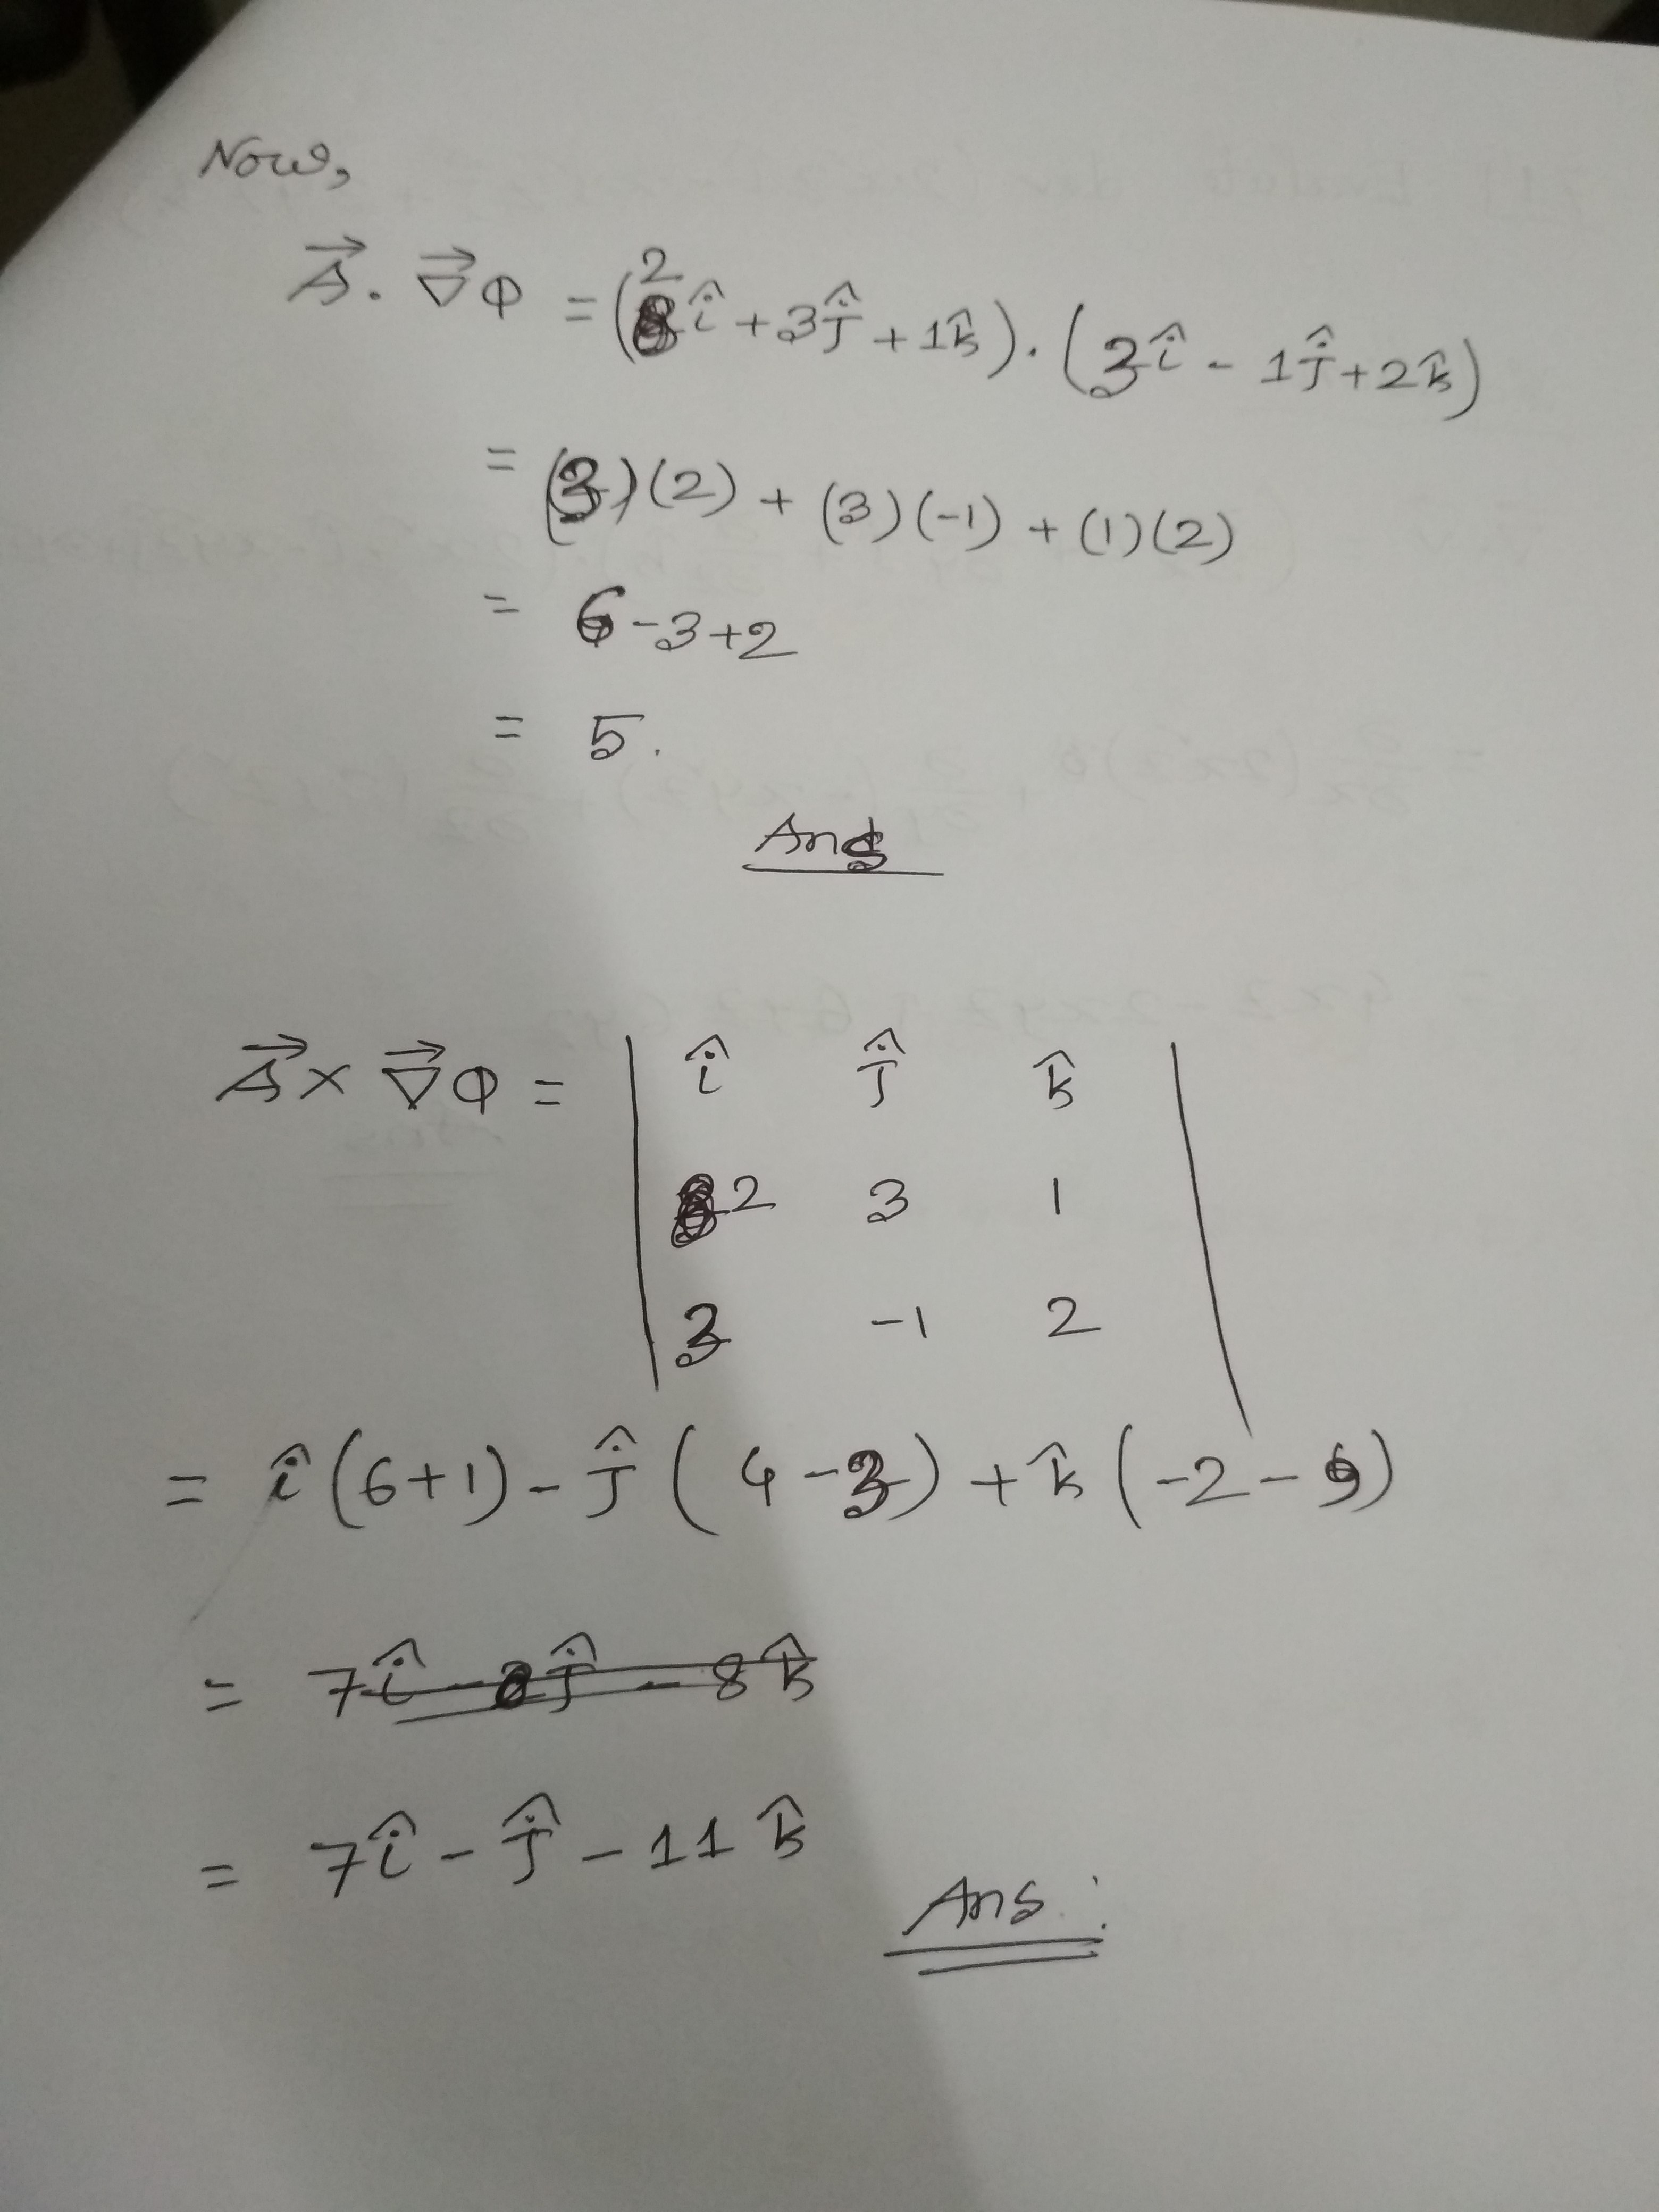 Now,
A⃗ . ∇⃗φ = (2î + 3ĵ + 1k̂) . (3î - 1ĵ + 2k̂)
= (3)(2) + (3)(-1) + (1)(2)
= 6 - 3 + 2
= 5.
Ans
A⃗ × ∇⃗φ = | î ĵ k̂ |
2 3 1
3 -1 2
= î (6+1) - ĵ (4-3) + k̂ (-2-9)
= 7î - 2ĵ - 8k̂
= 7î - ĵ - 11k̂
Ans :